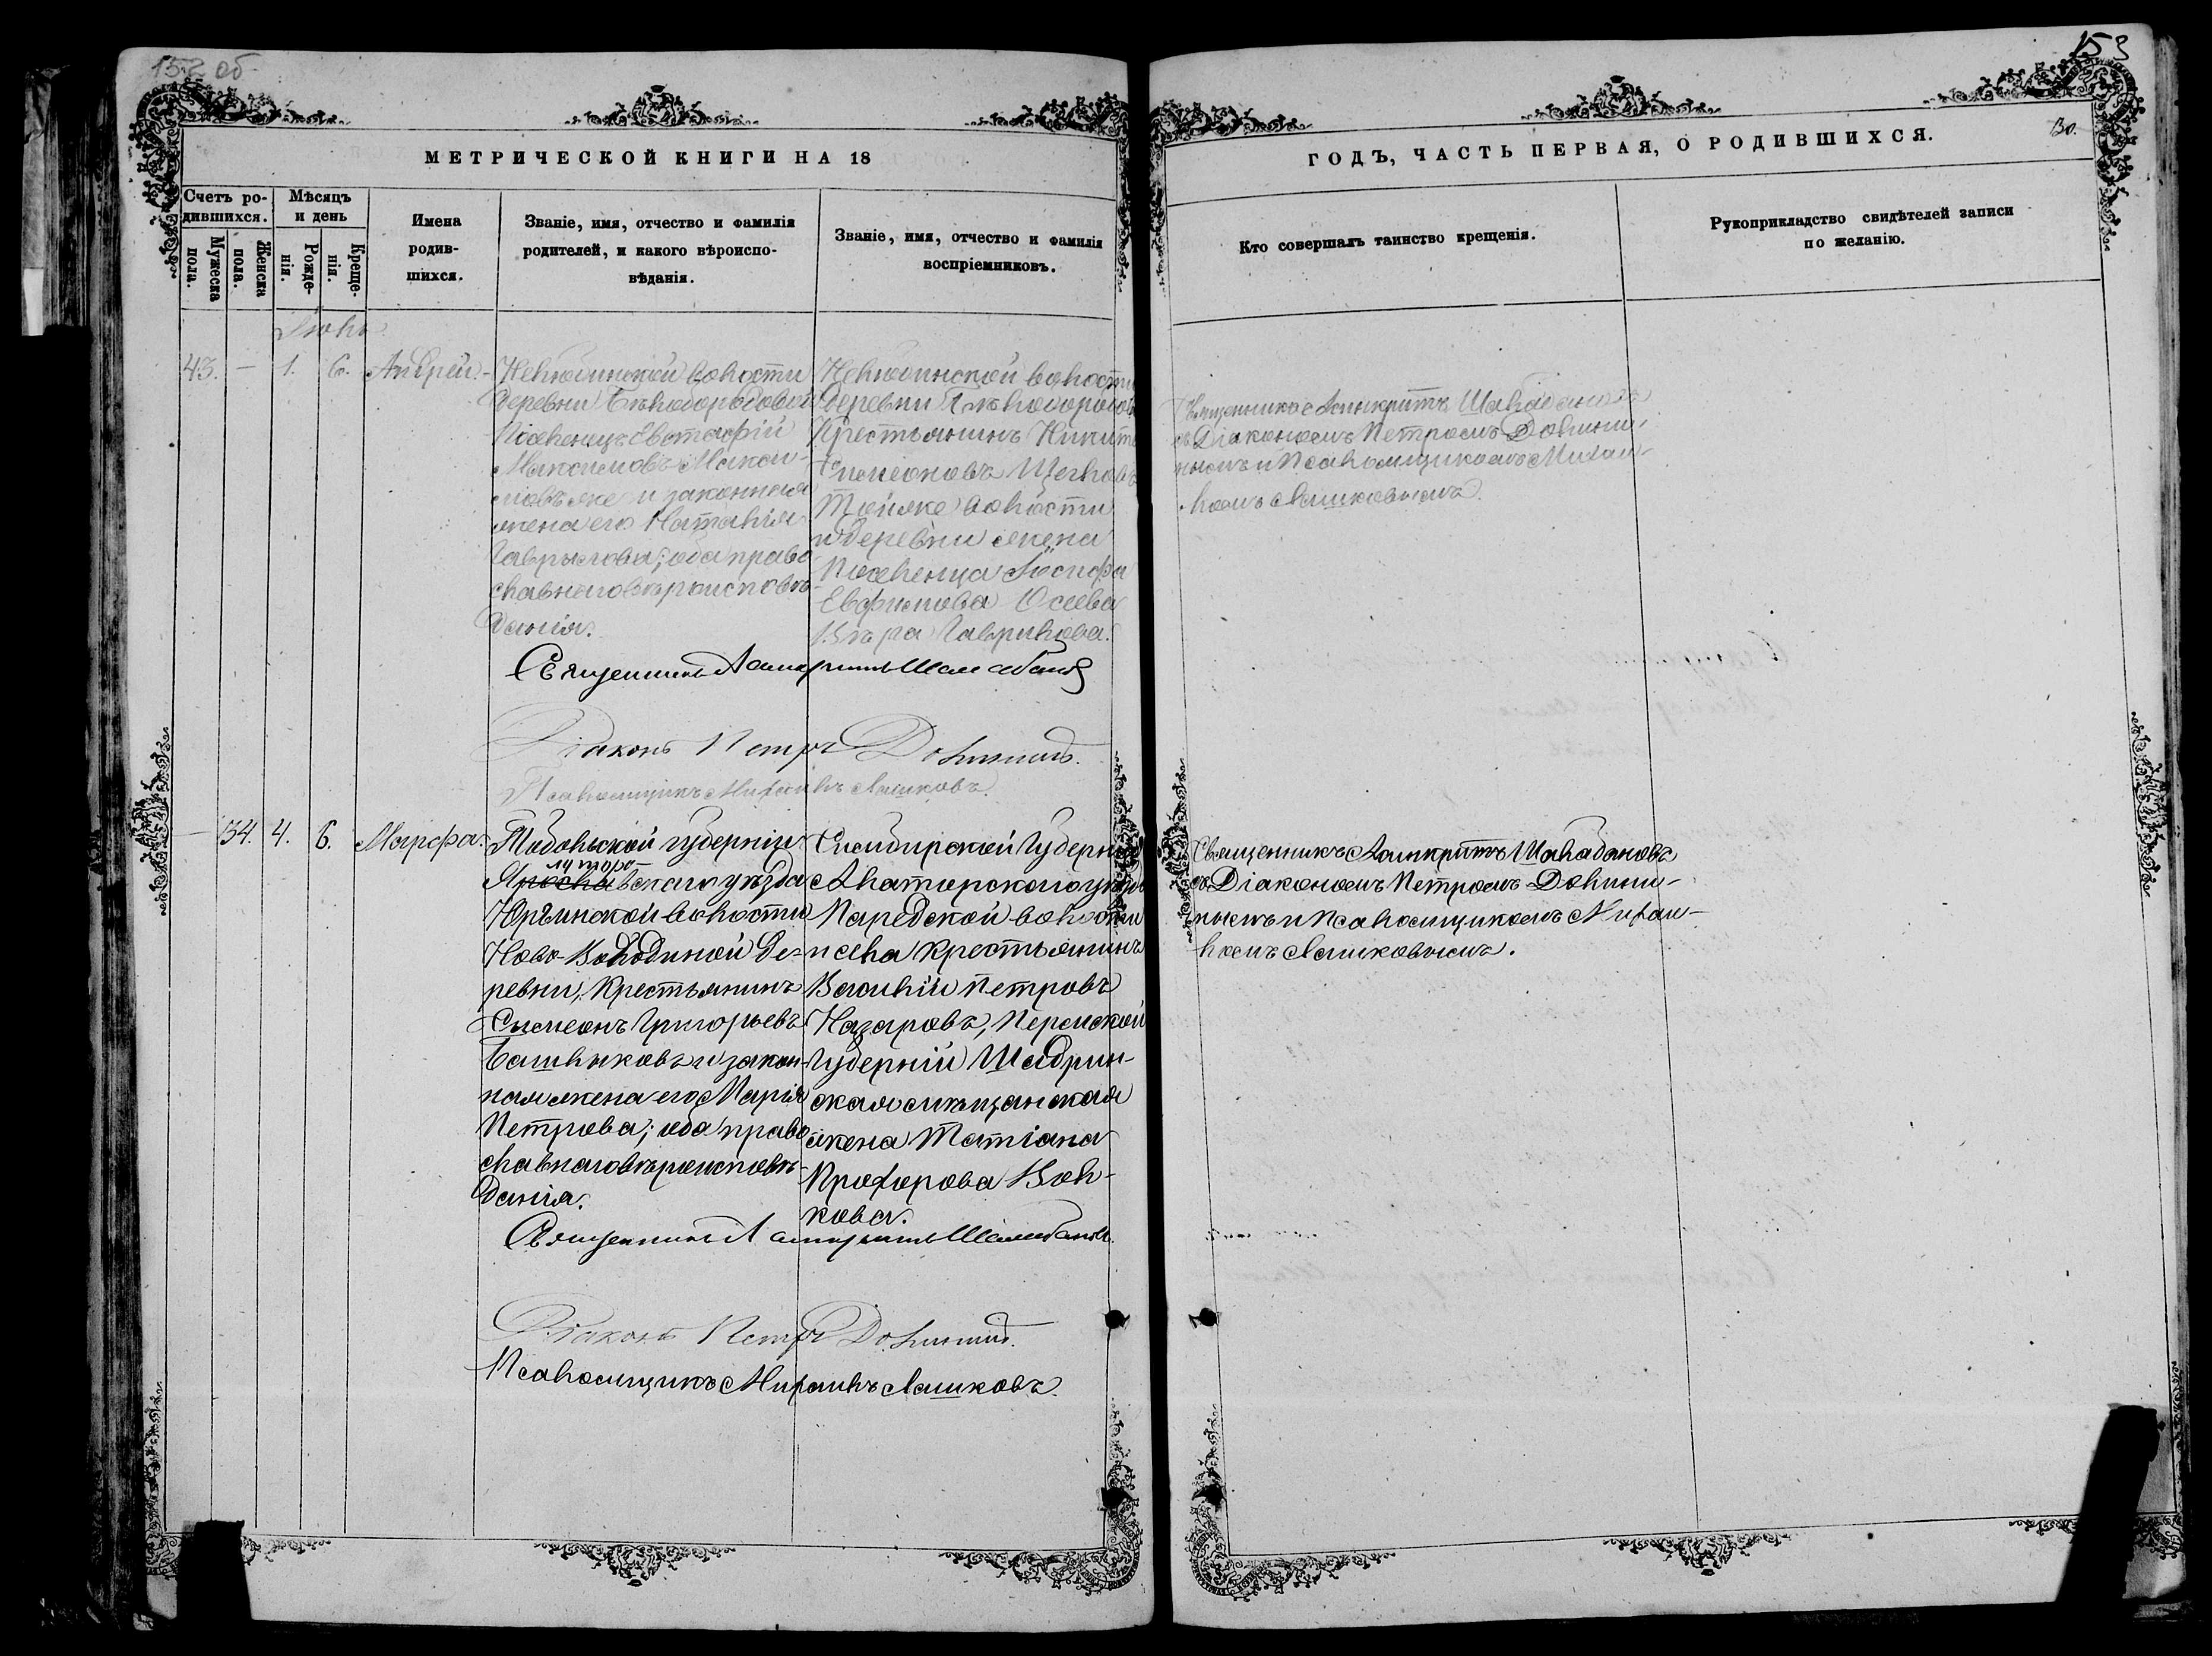 152 об
153
МЕТРИЧЕСКОЙ КНИГИ НА 18
ГОДЪ, ЧАСТЬ ПЕРВАЯ, О РОДИВШИХСЯ.
Счетъ ро-
дившихся.
Мужеска
пола.
Женска
пола.
Мѣсяцъ
и день
Рожде-
нія.
Креще-
нія.
Имена
родив-
шихся.
Званіе, имя, отчество и фамилія
родителей, и какого вѣроиспо-
вѣданія.
Званіе, имя, отчество и фамилія
воспріемниковъ.
Кто совершалъ таинство крещенія.
Рукоприкладство свидѣтелей записи
по желанію.
43. — 1. 6. Андрей.
волости
деревни
Поселенецъ Евстафій
Максимовъ Макси-
мовъ же и законная
жена его Наталія
оба право
славнаго вѣроисповѣ-
данія.
волости
деревни
Крестьянинъ Никита
Симеоновъ Щегловъ
Той же волости
и деревни жена
Поселенца Іосифа
Евфимова
Вѣра Гаврилова.
Священникъ Асинкритъ Шалабановъ
съ Діакономъ Петромъ Долини-
нымъ и Псаломщикомъ Михаи-
ломъ Лашковымъ.
Священникъ Асинкритъ Шалабановъ
Діаконъ Петръ Долининъ.
Псаломщикъ Михаилъ Лашковъ.
— 34. 4. 6. Марѳа.
Тобольской губерніи
луторо-
Ярославскаго уѣзда
Юргинской волости
Ново-Володиной де-
ревни, Крестьянинъ
Сумеонъ Григорьевъ
Башлыковъ и закон-
ная жена его Марія
Петрова; оба право
славнаго вѣроисповѣ-
данія.
Симбирской Губерніи
Алаторскаго уѣзда
Паредской волости
и села Крестьянинъ
Василій Петровъ
Назаровъ, Пермской
Губерніи Шадрин-
ская мѣщанская
жена Татіана
Прохорова Вол-
кова.
Священникъ Асинкритъ Шалабановъ
съ Діакономъ Петромъ Долини-
нымъ и Псаломщикомъ Михаи-
ломъ Лашковымъ.
Священникъ Асинкритъ Шалабановъ.
Діаконъ Петръ Долининъ.
Псаломщикъ Михаилъ Лашковъ.